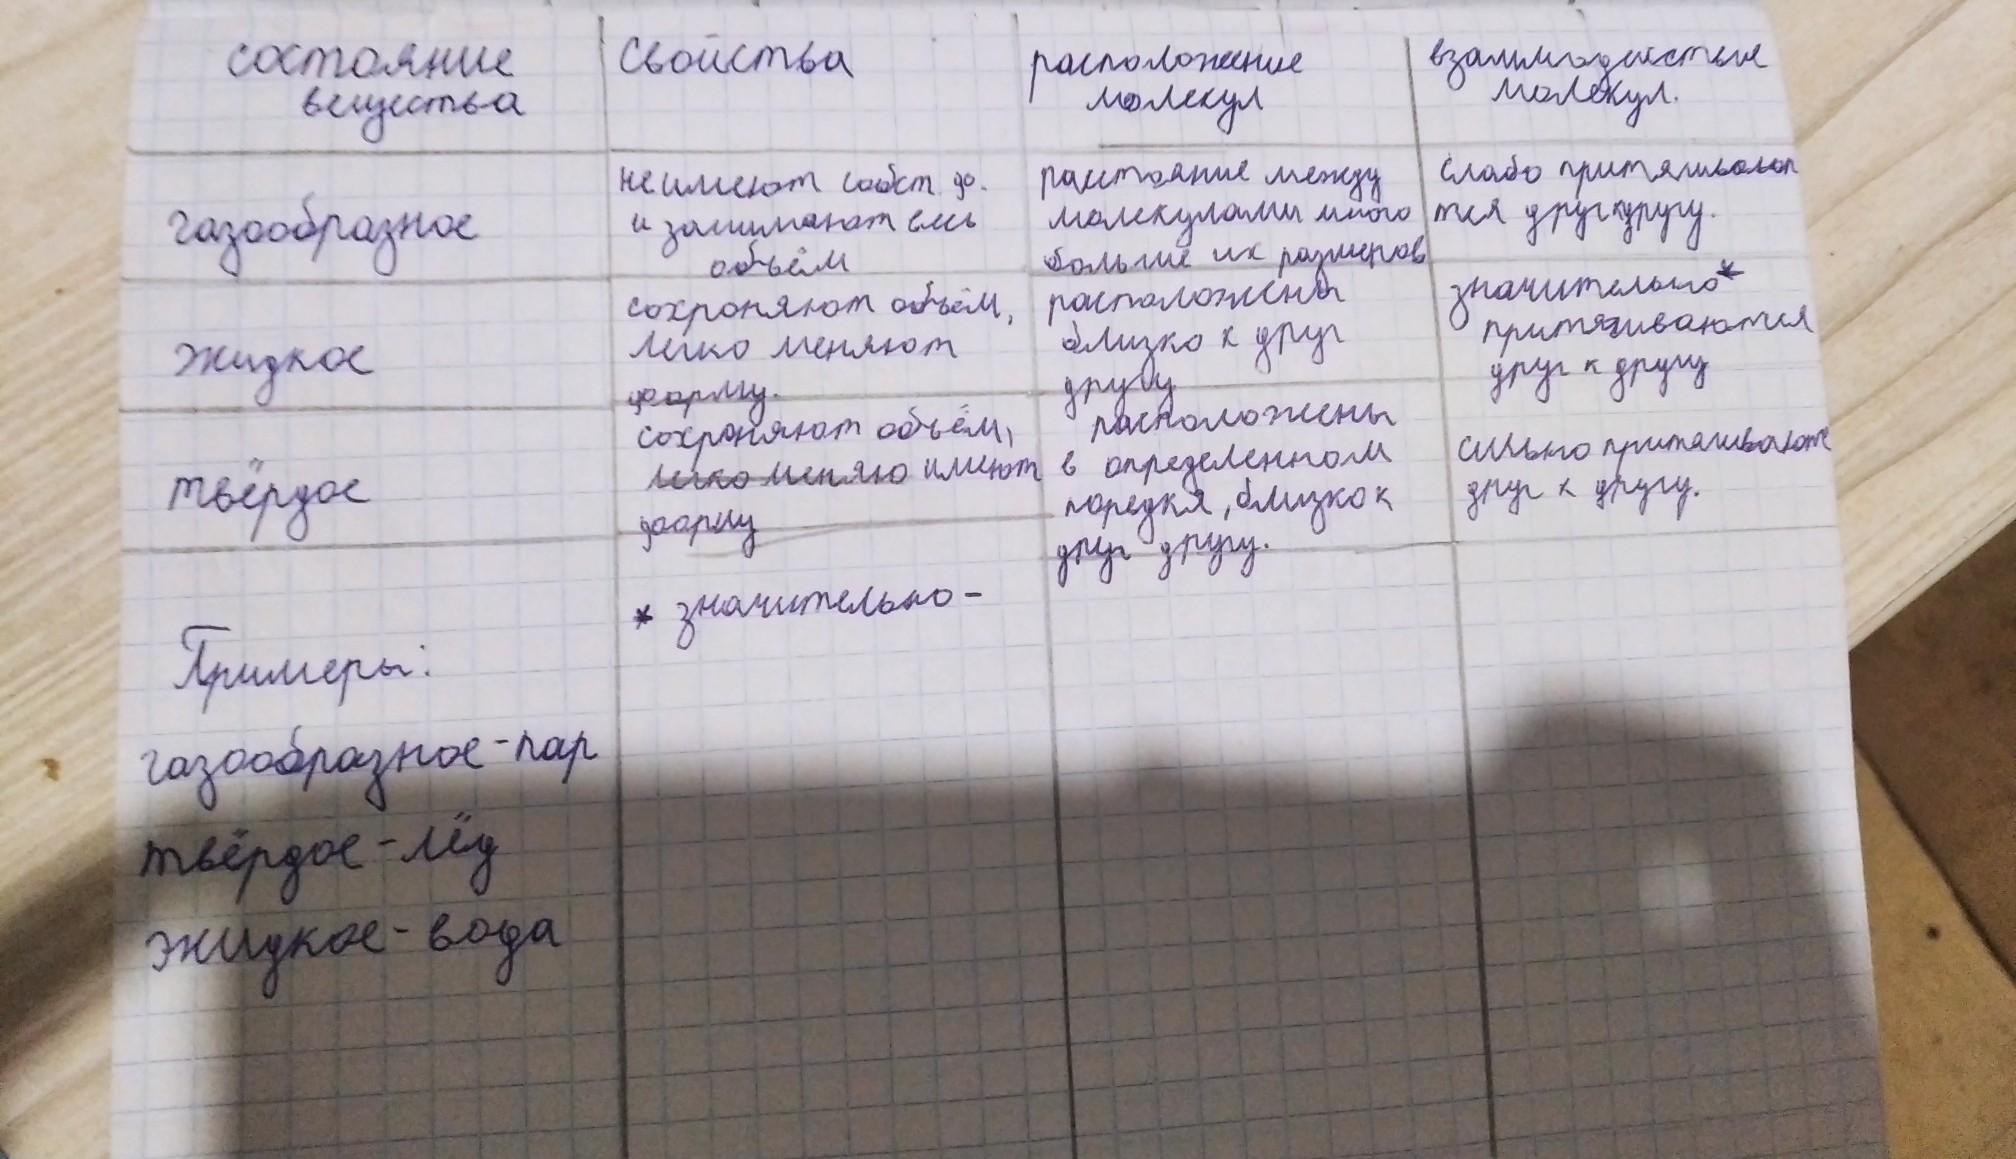 состояние
вещества
свойства
расположение
молекул
взаимодействия
молекул.
газообразное
не имеют собст. фо.
и занимают весь
объём
расстояние между
молекулами много
больше их размеров
слабо притягивают
тся друг к другу.
жидкое
сохроняют объём,
легко меняют
форму.
расположены
близко к друг
другу
значительно*
притягиваются
друг к другу
твёрдое
сохроняют объём,
легко меняю имеют
форму
расположены
в определенном
поредкя, близко к
друг другу.
сильно притягиваютс
друг к другу.
* значительно-
Примеры:
газообразное-пар
твёрдое-лёд
жидкое-вода